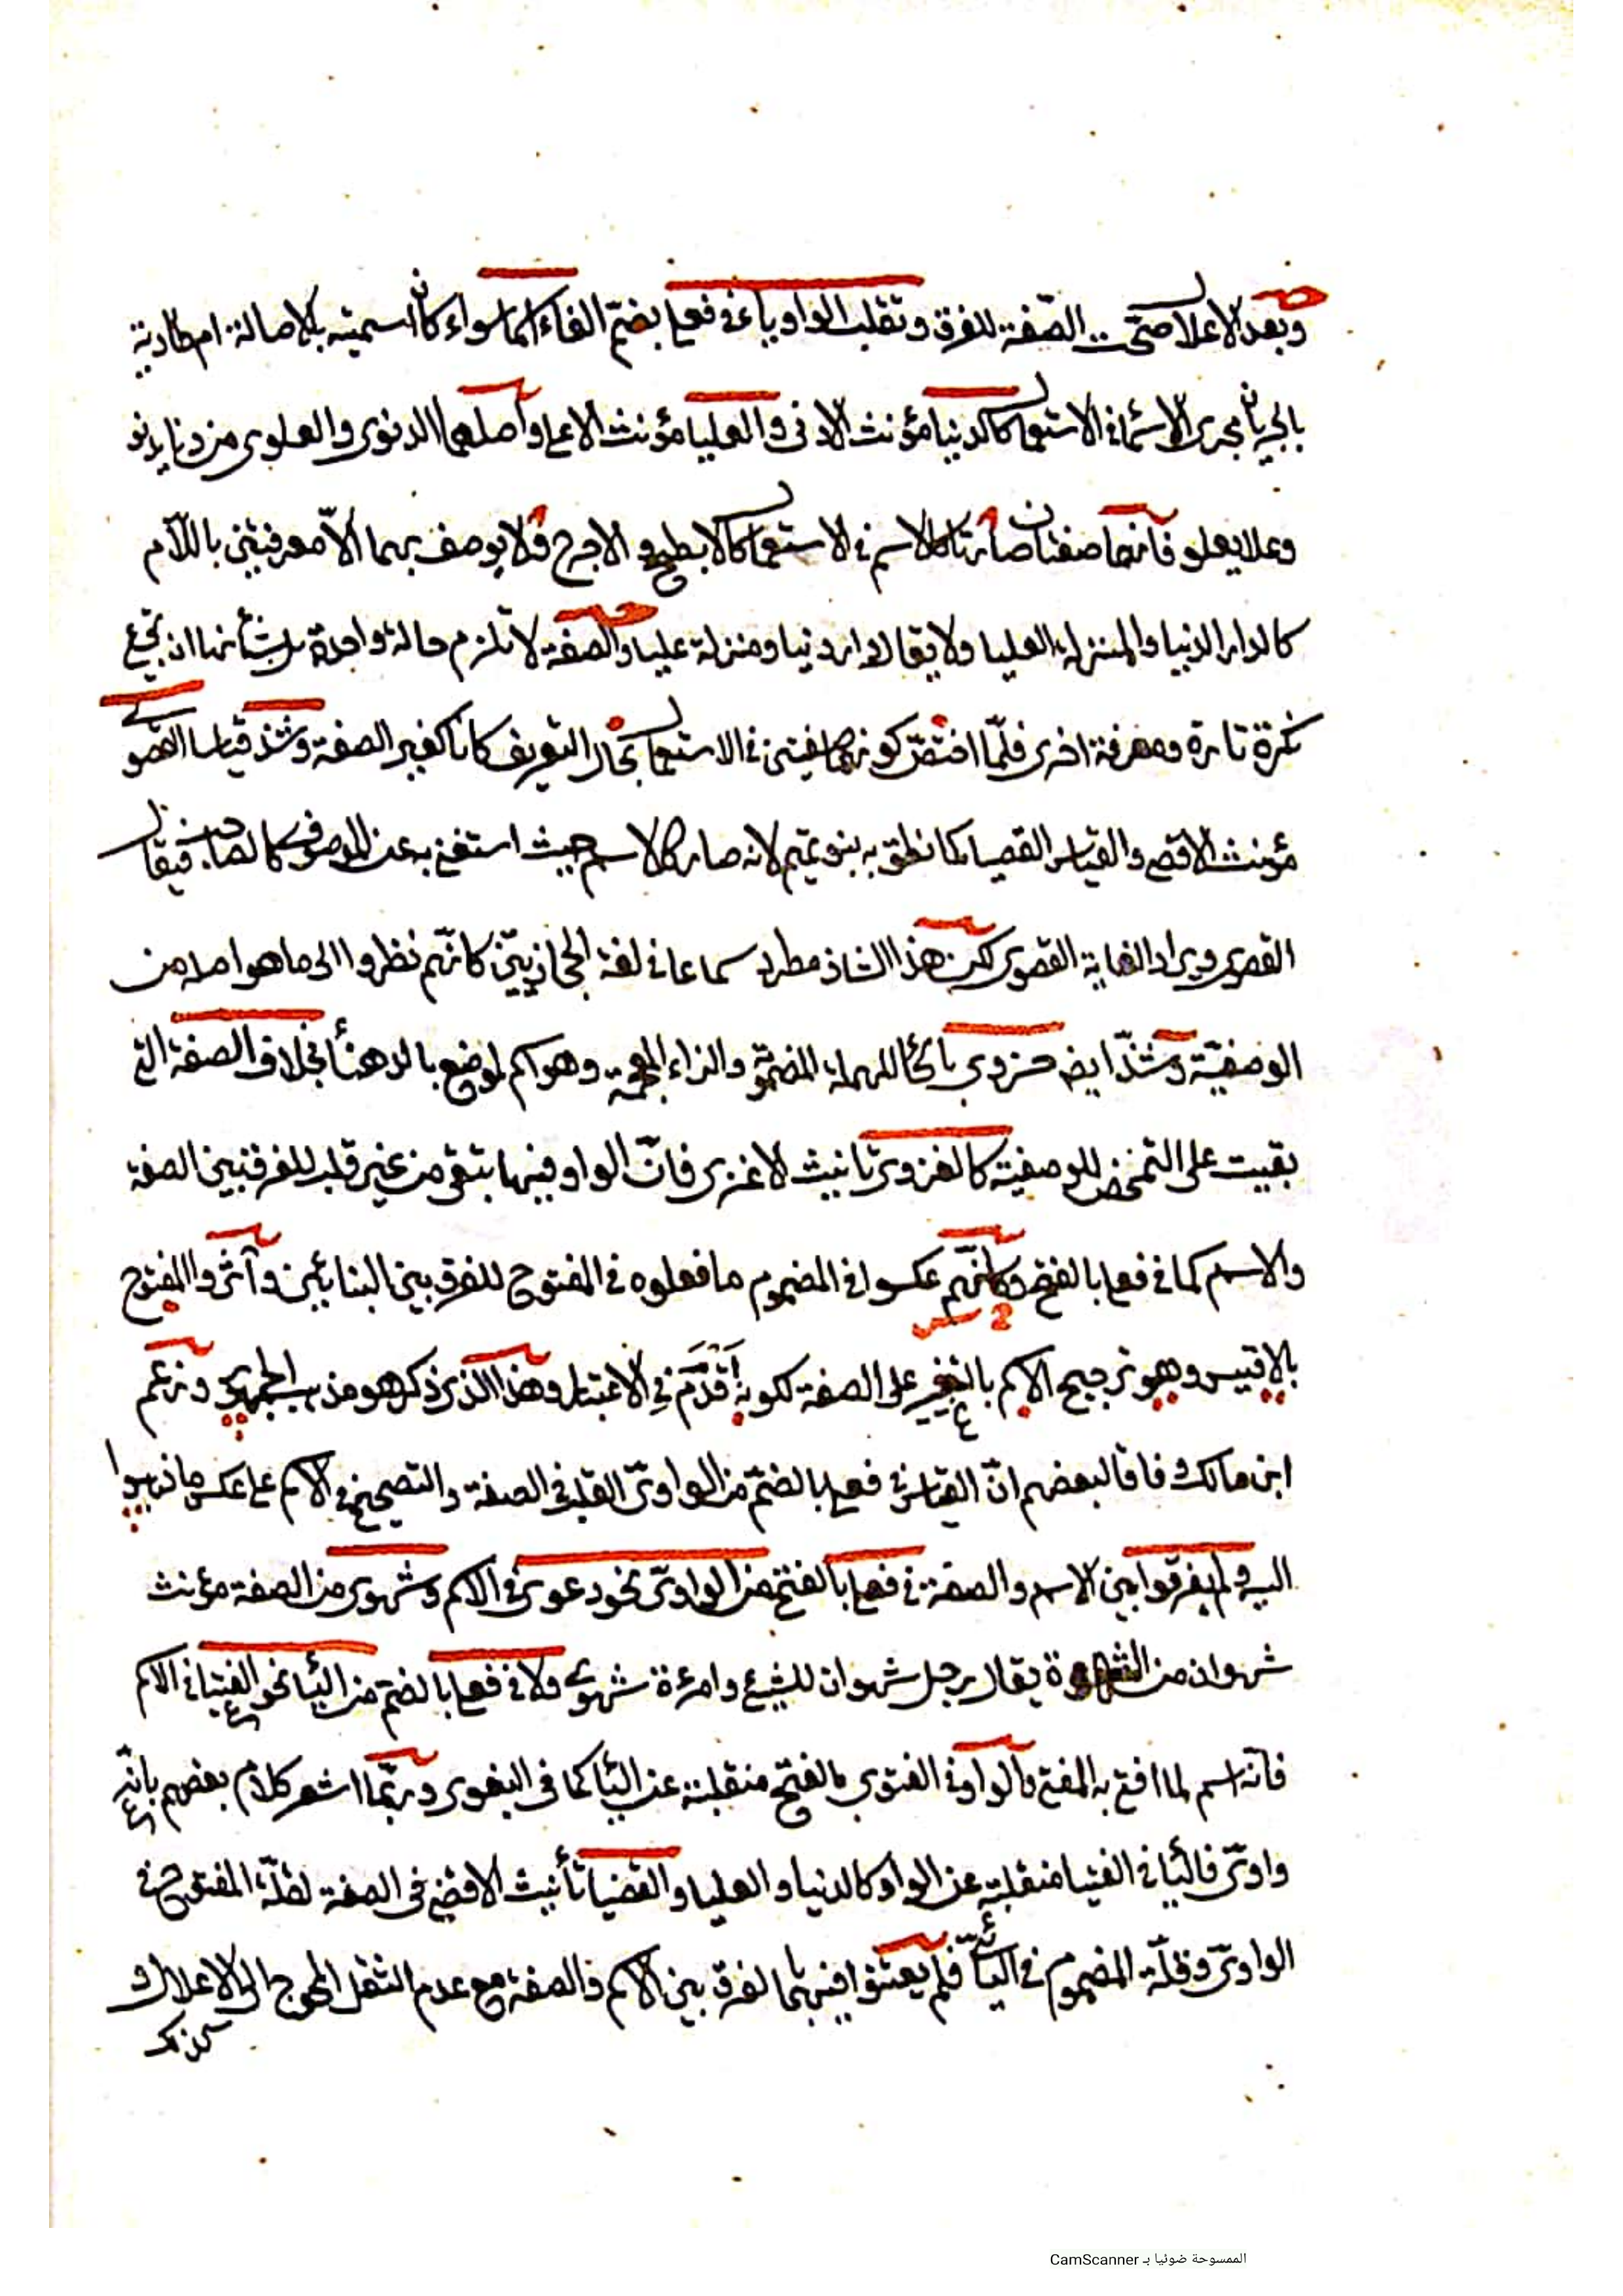 وبعد الاعلال صحّت الصّفة للفرق وتقلب الواو ياء في فعلى بضمّ الفاء اسما سواء كان اسميته بالاصالة ام طارية
بالجريان مجرى الاسماء في الاستعمال كالدنيا مؤنث الادنى والعليا مؤنث الاعلى واصلهما الدنوى والعلوى من دنا يدنو
وعلا يعلو فانهما صفتان صارتا كالاسم في الاستعمال كالابطح والاجرع ولا يوصف بهما الّا معرفتين باللّام
كالدار الدنيا والمنزلة العليا ولا يقال دار دنيا ومنزلة عليا والصفة لا تلزم حالة واحدة بل شأنها ان تقع
نكرة تارة ومعرفة اخرى فلمّا اختصّ كونهما صفتين في الاستعمال بحال التعريف كانا كغير الصفة وشذ قياسا القصوى
مؤنث الاقصى والقياس القصيا كما نطق به بنو تميم لانه صار كالاسم حيث استغنى به عن الموصوف كالصاحب فيقال
القصوى ويراد الغاية القصوى لكن هذا الشاذ مطرد سماعا في لغة الحجازيين كانّهم نظروا الى ما هو اصله من
الوصفيّة وشذّ ايض حزوى بالحاء المهملة المضمومة والزاء المعجمة وهو اسم لموضع بالدهنأ بخلاف الصفة التي
بقيت على التمخض للوصفية كالغزوى تانيث الاغزى فانّ الواو فيها يتقى من غير قلب للفرق بين الصفة
والاسم كما في فعلى بالفتح وكانّهم عكسوا في المضموم ما فعلوه في المفتوح للفرق بين البنائين وآثروا المفتوح
بالاقيس وهو ترجيح الاسم بالتغيير على الصفة لكونه أقدم في الاعتبار وهذا الذي ذكر هو مذهب الجمهور وزعم
ابن مالك وفاقا لبعضهم انّ القياس في فعلى بالضمّ من الواوىّ القلب في الصفة والتصحيح في الاسم على عكس ما ذهبوا
اليه ولم يفرقوا بين الاسم والصفة في فعلى بالفتح من الواوىّ نحو دعوى في الاسم وشهوى من الصفة مؤنث
شهوان من الشهوة يقال رجل شهوان للشيئ وامرءة شهوى ولا في فعلى بالضم من اليائى نحو الفتيا في الاسم
فانّه اسم لما افتى به المفتى والواو في الفتوى بالفتح منقلبة عن الياء كما في البغوى وربّما اشعر كلام بعضهم بانّه
واوىّ فالياء في الفتيا منقلبة عن الواو كالدنيا والعليا والقضيا تأنيث الاقضى في الصفة لقلّة المفتوح في
الواوىّ وقلّة المضموم في اليائىّ فلم يعتنوا فيهما بالفرق بين الاسم والصفة مع عدم الثقل المحوج الى الاعلال في
كذلك
الممسوحة ضوئيا بـ CamScanner